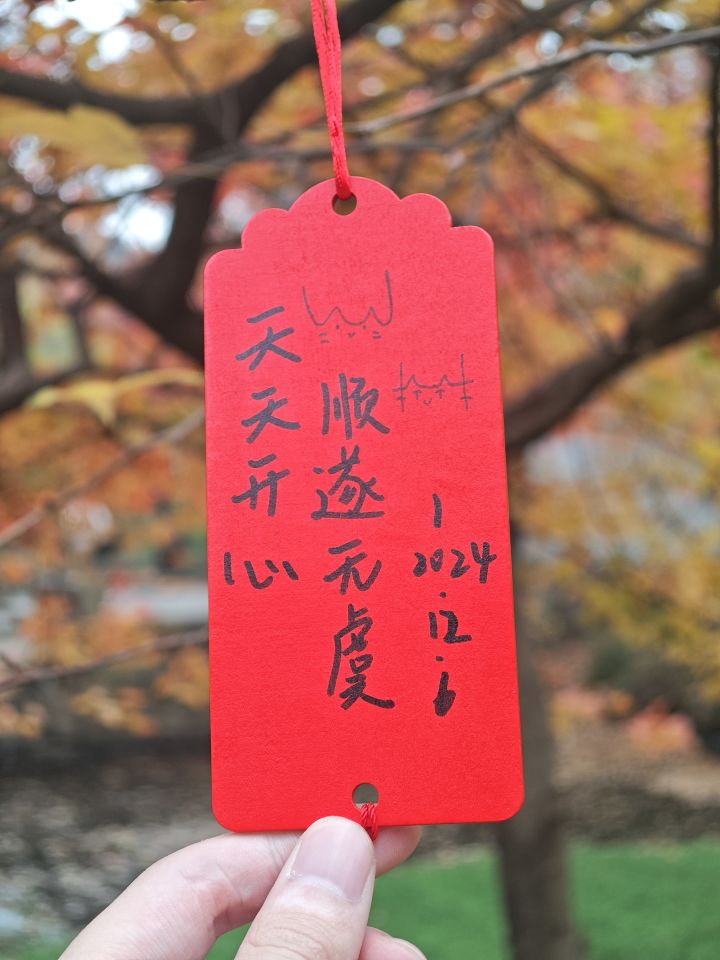 天天开心
顺遂无虞
1
2024
.
12
.
6